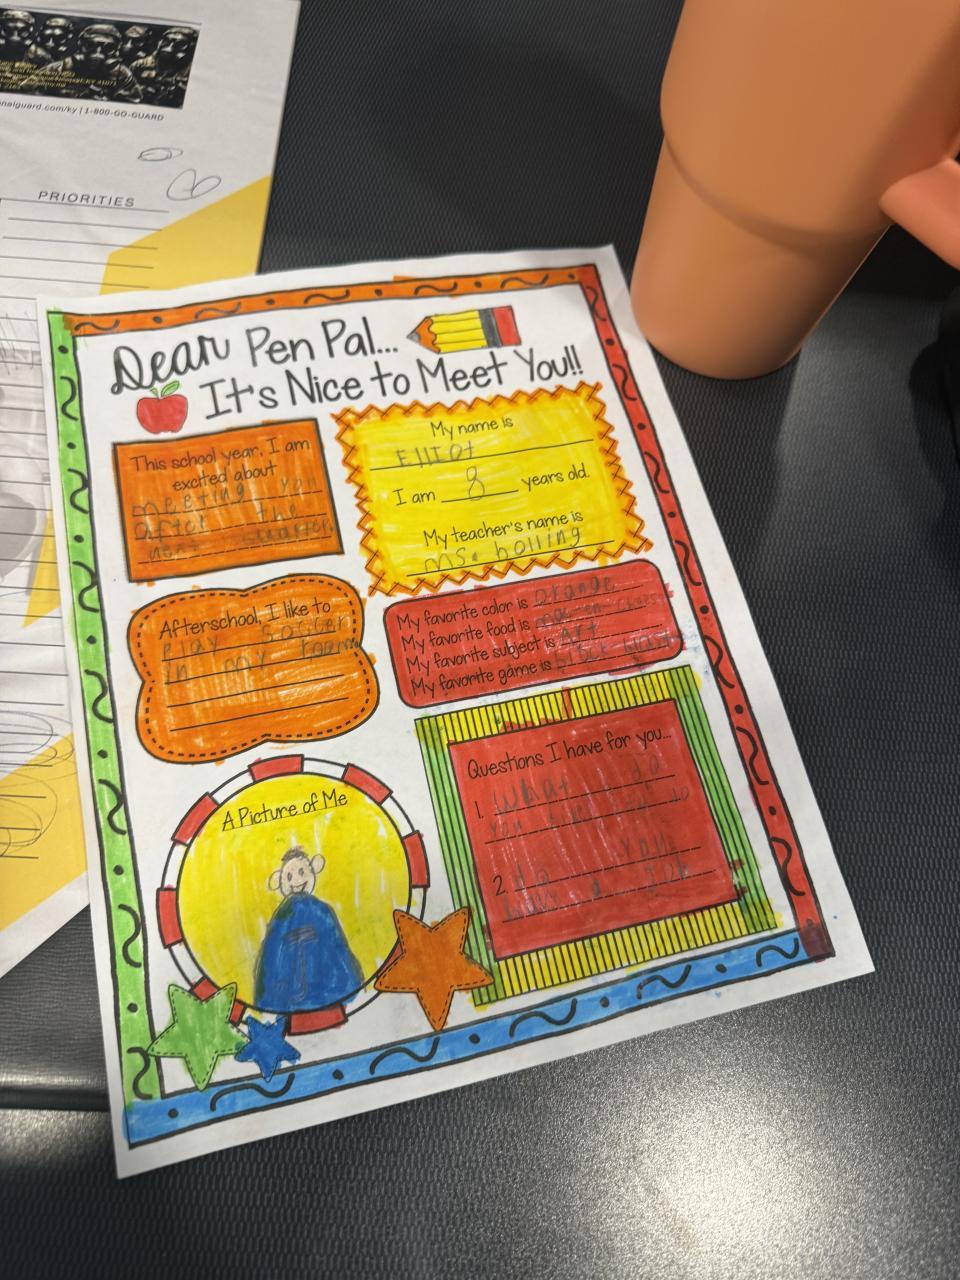 nalguard.com/ky | 1-800-GO-GUARD
PRIORITIES
Dear Pen Pal...
It's Nice to Meet You!!
This school year, I am
excited about
meeting you
after the
My name is
Elliot
I am 8 years old.
My teacher's name is
ms. bolling
Afterschool, I like to
Play soccer
in my room
My favorite color is orange
My favorite food is
My favorite subject is Art
My favorite game is block
A Picture of Me
Questions I have for you...
1. What do
you
2. do you
have a Job